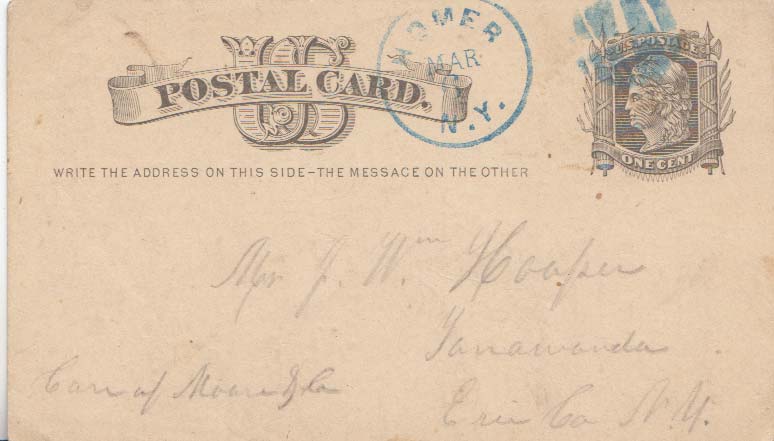 U.S.
POSTAL CARD.
HOMER
MAR
N.Y.
U.S. POSTAGE
ONE CENT
WRITE THE ADDRESS ON THIS SIDE–THE MESSAGE ON THE OTHER
Mr J. Wm Hooper
Tonawanda
Care of Moore & Co
Erie Co N.Y.